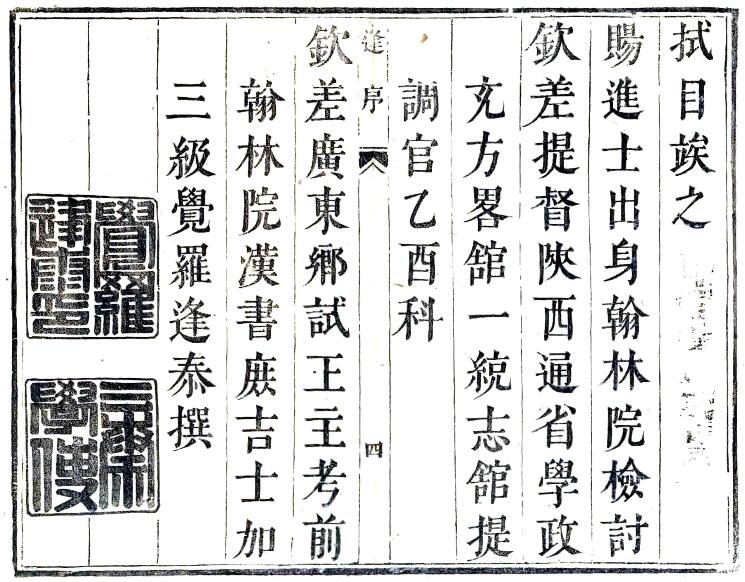 拭目竢之
賜進士出身翰林院檢討
欽差提督陜西通省學政
充方畧舘一統志舘提
調官乙酉科
逢序
四
欽差廣東鄉試正主考前
翰林院漢書庶吉士加
三級覺羅逢泰撰
覺羅
三秦
學使